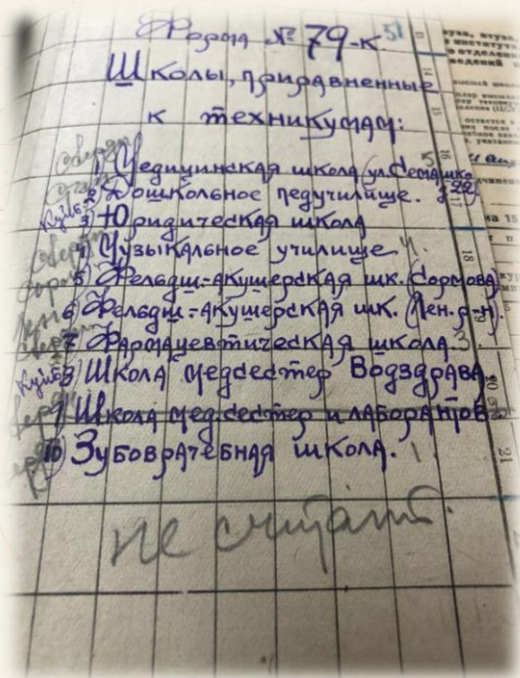 Форма № 79-к. 51
Школы, приравненные
к техникумам:
1) Медицинская школа (ул. Семашко
22)
2) Дошкольное педучилище.
3) Юридическая школа
4) Музыкальное училище 4.
5) Фельдш-акушерская шк. (Сормова)
6) Фельдш-акушерская шк. (Лен. р-н).
7) Фармацевтическая школа 3.
8) Школа медсестер Водздрава
9) Школа медсестер и лаборантов
10) Зубоврачебная школа. 1.
не считать.